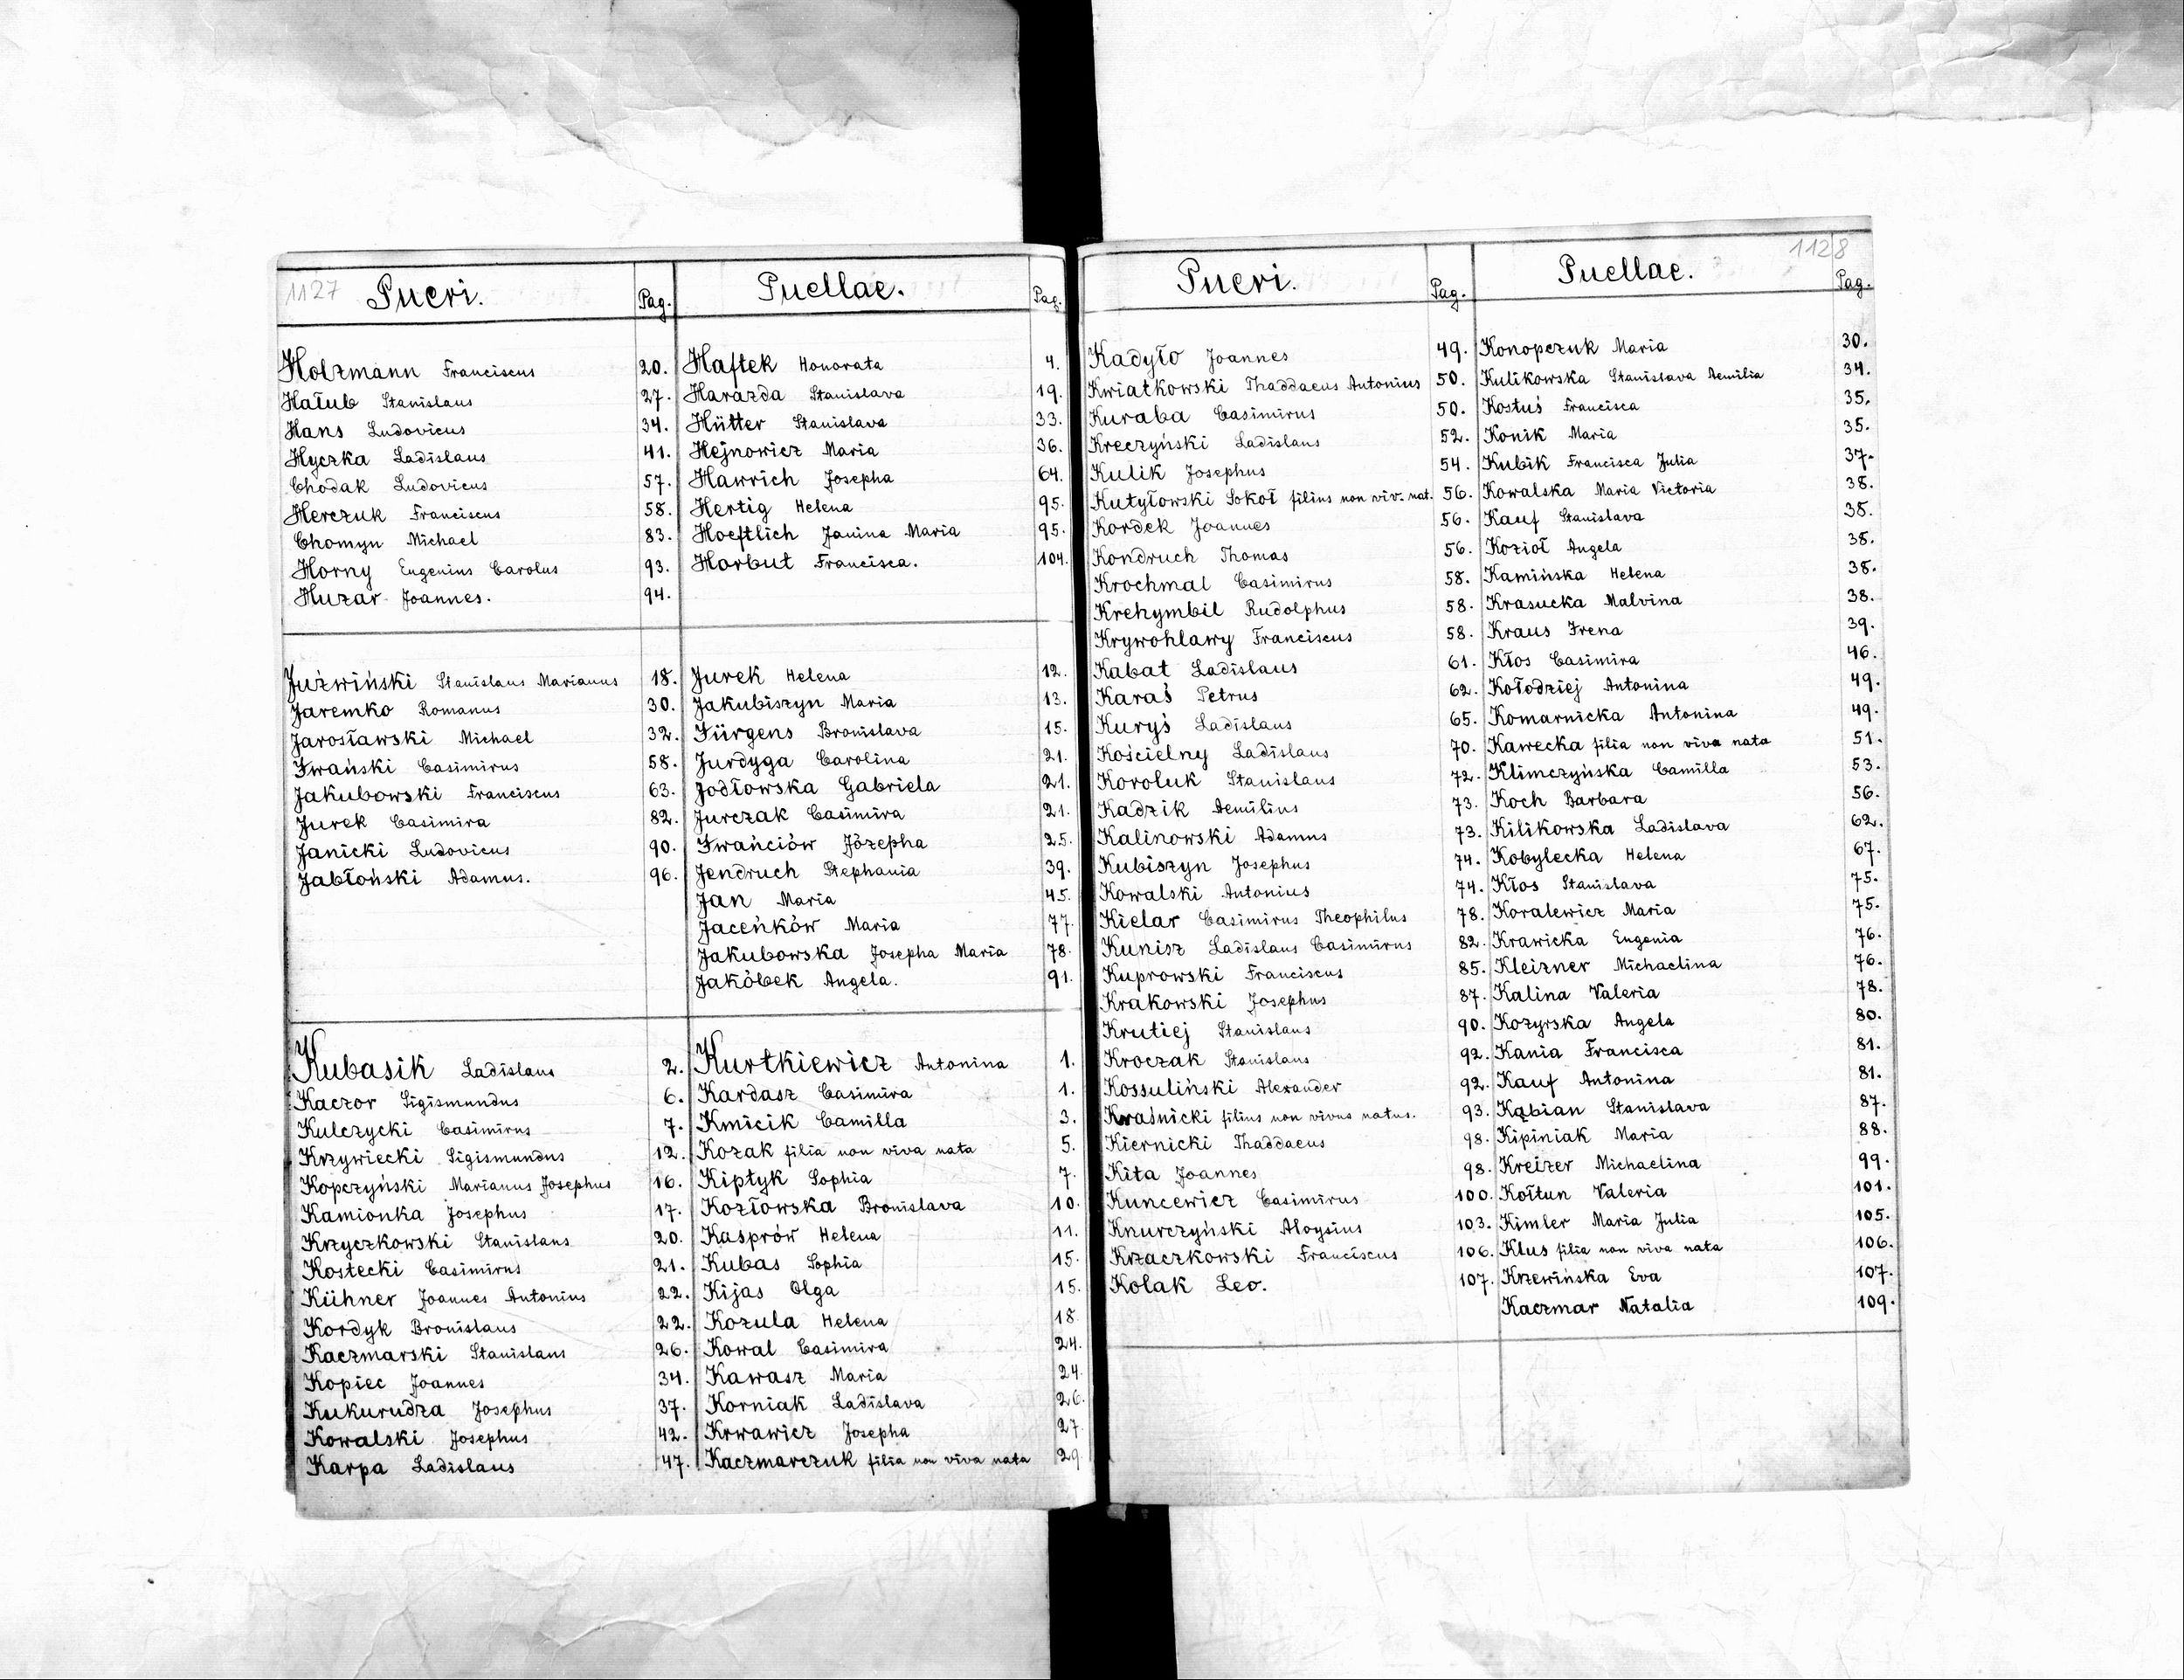 1127
Pueri.
Pag.
Holzmann Franciscus 20.
Hałub Stanislaus 27.
Hans Ludovicus 34.
Hyczka Ladislaus 41.
Chodak Ludovicus 57.
Herczuk Franciscus 58.
Chomyn Michael 83.
Horny Eugenius Carolus 93.
Huzar Joannes. 94.
Juźwiński Stanislaus Marianus 18.
Jaremko Romanus 30.
Jarosławski Michael 32.
Iwański Casimirus 58.
Jakubowski Franciscus 63.
Jurek Casimira 82.
Janicki Ludovicus 90.
Jabłoński Adamus. 96.
Kubasik Ladislaus 2.
Kaczor Sigismundus 6.
Kulczycki Casimirus 7.
Krzywiecki Sigismundus 12.
Kopczyński Marianus Josephus 16.
Kamionka Josephus 17.
Krzyczkowski Stanislaus 20.
Kostecki Casimirus 21.
Kühner Joannes Antonius 22.
Kordyk Bronislaus 22.
Kaczmarski Stanislaus 26.
Kopiec Joannes 34.
Kukurudza Josephus 37.
Kowalski Josephus 42.
Karpa Ladislaus 47.
Puellae.
Pag.
Haftek Honorata 4.
Harazda Stanislava 19.
Hütter Stanislava 33.
Hejnowicz Maria 36.
Hawrich Josepha 64.
Hertig Helena 95.
Hoeftlich Janina Maria 95.
Horbut Francisca. 104.
Jurek Helena 12.
Jakubiszyn Maria 13.
Jürgens Bronislava 15.
Jurdyga Carolina 21.
Jodłowska Gabriela 21.
Jurczak Casimira 21.
Iwańciów Józepha 25.
Jendruch Stephania 39.
Jan Maria 45.
Jaceńków Maria 77.
Jakubowska Josepha Maria 78.
Jakóbek Angela. 91.
Kurtkiewicz Antonina 1.
Kardasz Casimira 1.
Kmicik Camilla 3.
Kozak filia non viva nata 5.
Kiptyk Sophia 7.
Kozłowska Bronislava 10.
Kasprów Helena 11.
Kubas Sophia 15.
Kijas Olga 15.
Kozula Helena 18.
Kowal Casimira 24.
Kawasz Maria 24.
Korniak Ladislava 26.
Krwawicz Josepha 27.
Kaczmarczuk filia non viva nata 29.
Pueri.
Pag.
Kadyło Joannes 49.
Kwiatkowski Thaddaeus Antonius 50.
Kuraba Casimirus 50.
Kreczyński Ladislaus 52.
Kulik Josephus 54.
Kutyłowski Sokoł filius non viv. nat. 56.
Kordek Joannes 56.
Kondruch Thomas 56.
Krochmal Casimirus 58.
Krehymbil Rudolphus 58.
Krywohlawy Franciscus 58.
Kabat Ladislaus 61.
Karaś Petrus 62.
Kuryś Ladislaus 65.
Kościelny Ladislaus 70.
Koroluk Stanislaus 72.
Kadzik Aemilius 73.
Kalinowski Adamus 73.
Kubiszyn Josephus 74.
Kowalski Antonius 74.
Kielar Casimirus Theophilus 78.
Kunisz Ladislaus Casimirus 82.
Kuprowski Franciscus 85.
Krakowski Josephus 87.
Krutiej Stanislaus 90.
Kroczak Stanislaus 92.
Kossuliński Alexander 92.
Kraśnicki filius non vivus natus. 93.
Kiernicki Thaddaeus 98.
Kita Joannes 98.
Kuncewicz Casimirus 100.
Knurczyński Aloysius 103.
Krzaczkowski Franciscus 106.
Kolak Leo. 107.
1128
Puellae.
Pag.
Konopczuk Maria 30.
Kulikowska Stanislava Aemilia 34.
Kostuś Francisca 35.
Konik Maria 35.
Kubik Francisca Julia 37.
Kowalska Maria Victoria 38.
Kauf Stanislava 38.
Kozioł Angela 38.
Kamińska Helena 38.
Krasucka Malvina 38.
Kraus Irena 39.
Kłos Casimira 46.
Kołodziej Antonina 49.
Komarnicka Antonina 49.
Kawecka filia non viva nata 51.
Klimczyńska Camilla 53.
Koch Barbara 56.
Kilikowska Ladislava 62.
Kobylecka Helena 67.
Kłos Stanislava 75.
Koralewicz Maria 75.
Krawicka Eugenia 76.
Kleizner Michaelina 76.
Kalina Valeria 78.
Kozyrska Angela 80.
Kania Francisca 81.
Kauf Antonina 81.
Kabian Stanislava 87.
Kipiniak Maria 88.
Kreizer Michaelina 99.
Kołtun Valeria 101.
Kimler Maria Julia 105.
Klus filia non viva nata 106.
Krzewińska Eva 107.
Kaczmar Natalia 109.